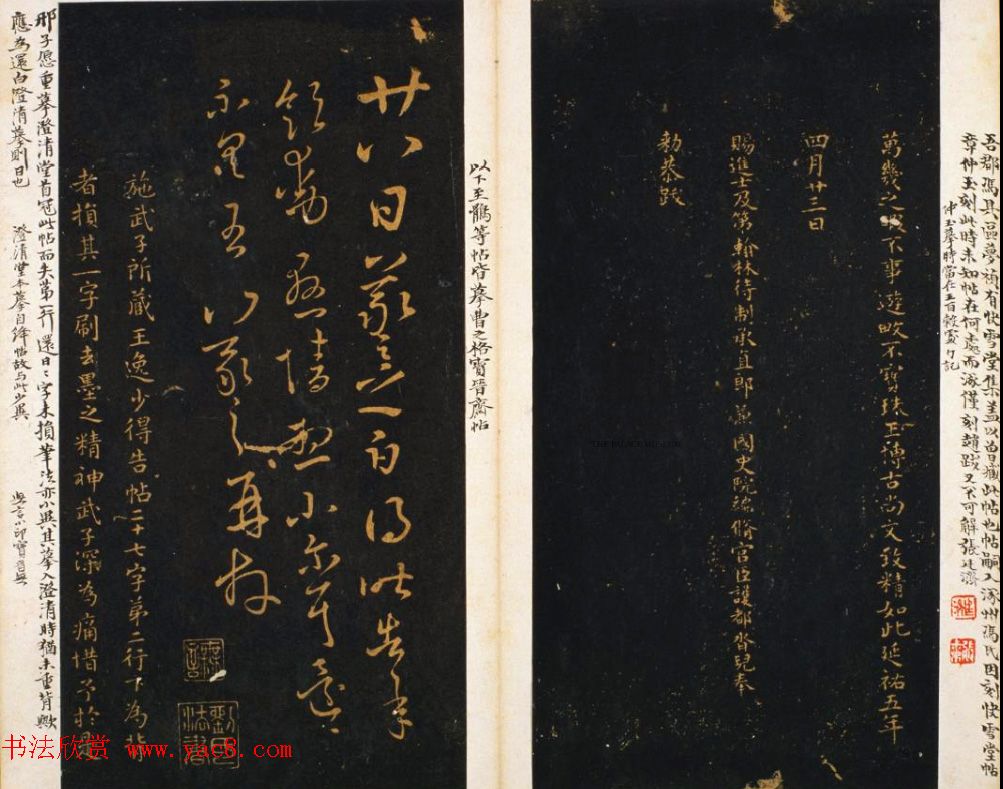 吾郡馮具區夢禎有快雪堂集蓋以曾藏此帖也帖嗣入涿州馮氏因刻快雪堂帖
章仲玉刻此時未知帖在何處而涿僅刻趙跋又不可解張廷濟
仲玉摹時當在王百穀處 又記
萬幾之暇不事遊畋不寶珠玉博古尚文致精如此延祐五年
四月廿三日
賜進士及第翰林待制承直郎兼國史院編脩官臣護都沓兒奉
勑恭跋
THE PALACE MUSEUM
以下至鵝等帖皆摹曹之格寶晉齋帖
廿八日羲之白得昨告承
飲動懸情想小爾耳還
不具吾 羲之再拜
施武子所藏王逸少得告帖二十七字第二行下為背
者損其一字刷去墨之精神武子深為痛惜予於是
邢子愿重摹澄清堂首冠此帖而失第一行還日二字未損筆法亦小異其摹入澄清時猶未重背歟
應為還白澄清摹則日也
澄清堂本摹自絳帖故与此少異
书法欣赏 www.yac8.com